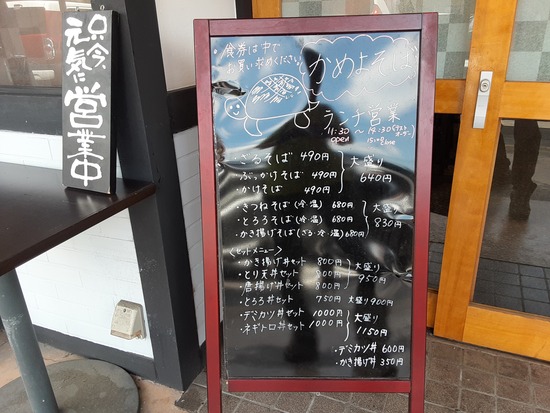 只今、
元気に
営業中
食券は中で
お買い求めください
かめよそば
ランチ営業
11:30 ～ 14:30 (ラストオーダー)
open 15:00 close
・ざるそば 490円
・ぶっかけそば 490円
・かけそば 490円
大盛り
640円
・きつねそば (冷・温) 680円
・とろろそば (冷・温) 680円
・かき揚げそば (ざる・冷・温) 680円
大盛り
830円
<セットメニュー>
・かき揚げ丼セット 800円
・とり天丼セット 800円
・唐揚げ丼セット 800円
大盛り
950円
・とろろ丼セット 750円 大盛り 900円
・デミカツ丼セット 1000円
・ネギトロ丼セット 1000円
大盛り
1150円
・デミカツ丼 600円
・かき揚げ丼 350円